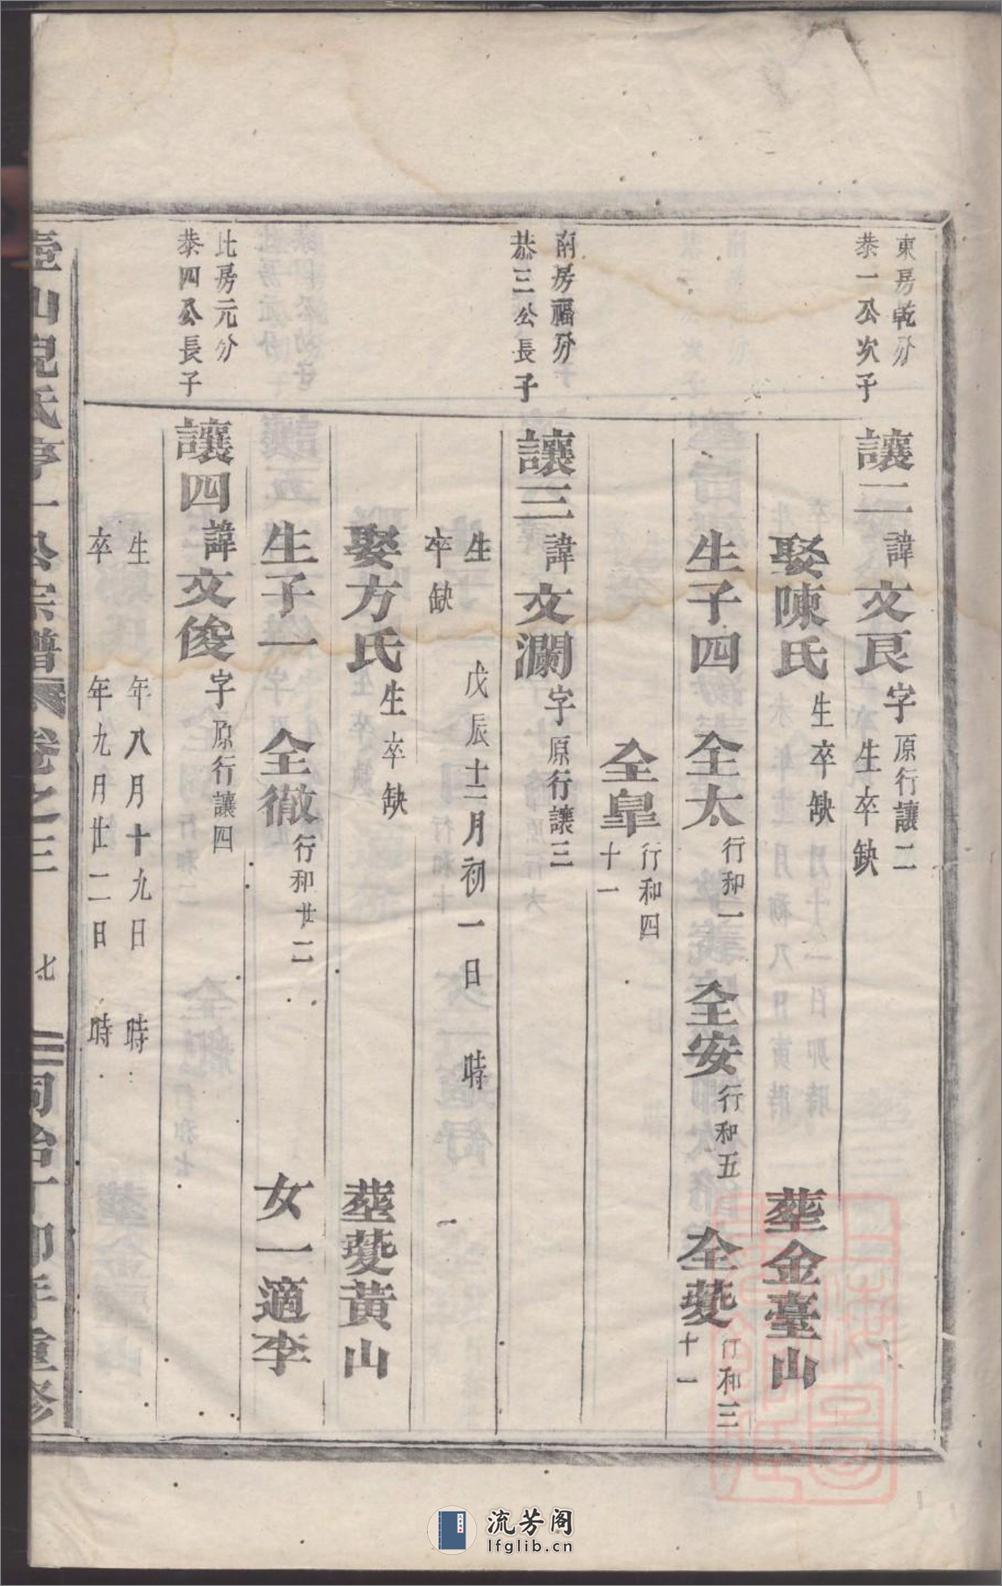 東房乾分
恭一公次子
讓二諱文艮字原行讓二
生卒缺
娶陳氏生卒缺 葬金臺山
生子四 全太行和一 全安行和五 全夔行和三十一
全皐行和四十一
南房福分
恭三公長子
讓三諱文瀾字原行讓三
生 戊辰十二月初一日 時
卒缺
娶方氏生卒缺 葬夔黃山
生子一 全徹行和廿二 女一適李
比房元分
恭四公長子
讓四諱文俊字原行讓四
生 年八月十九日 時
卒 年九月廿二日 時
壺山倪氏亨一公宗譜 卷之三 七 同治丁卯年重修
流芳阁
lfglib.cn